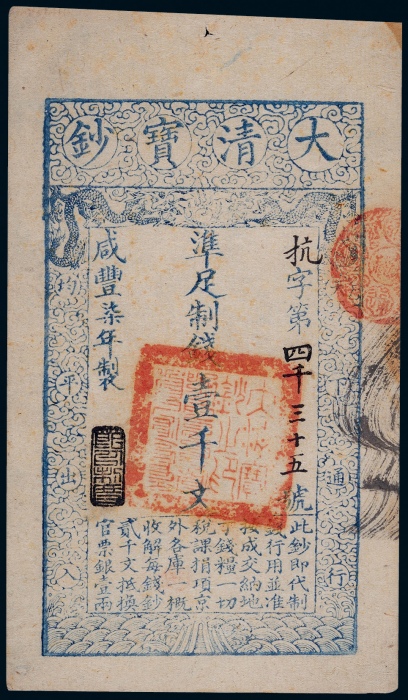 大清寶鈔
下通行
抗字第四千三十五號
準足制錢壹千文
咸豐柒年製
均平出入
此鈔即代制
錢行用並准
按成交納地
丁錢糧一切
稅課捐項京
外各庫一概
收解每錢鈔
貳千文抵換
官票銀壹兩